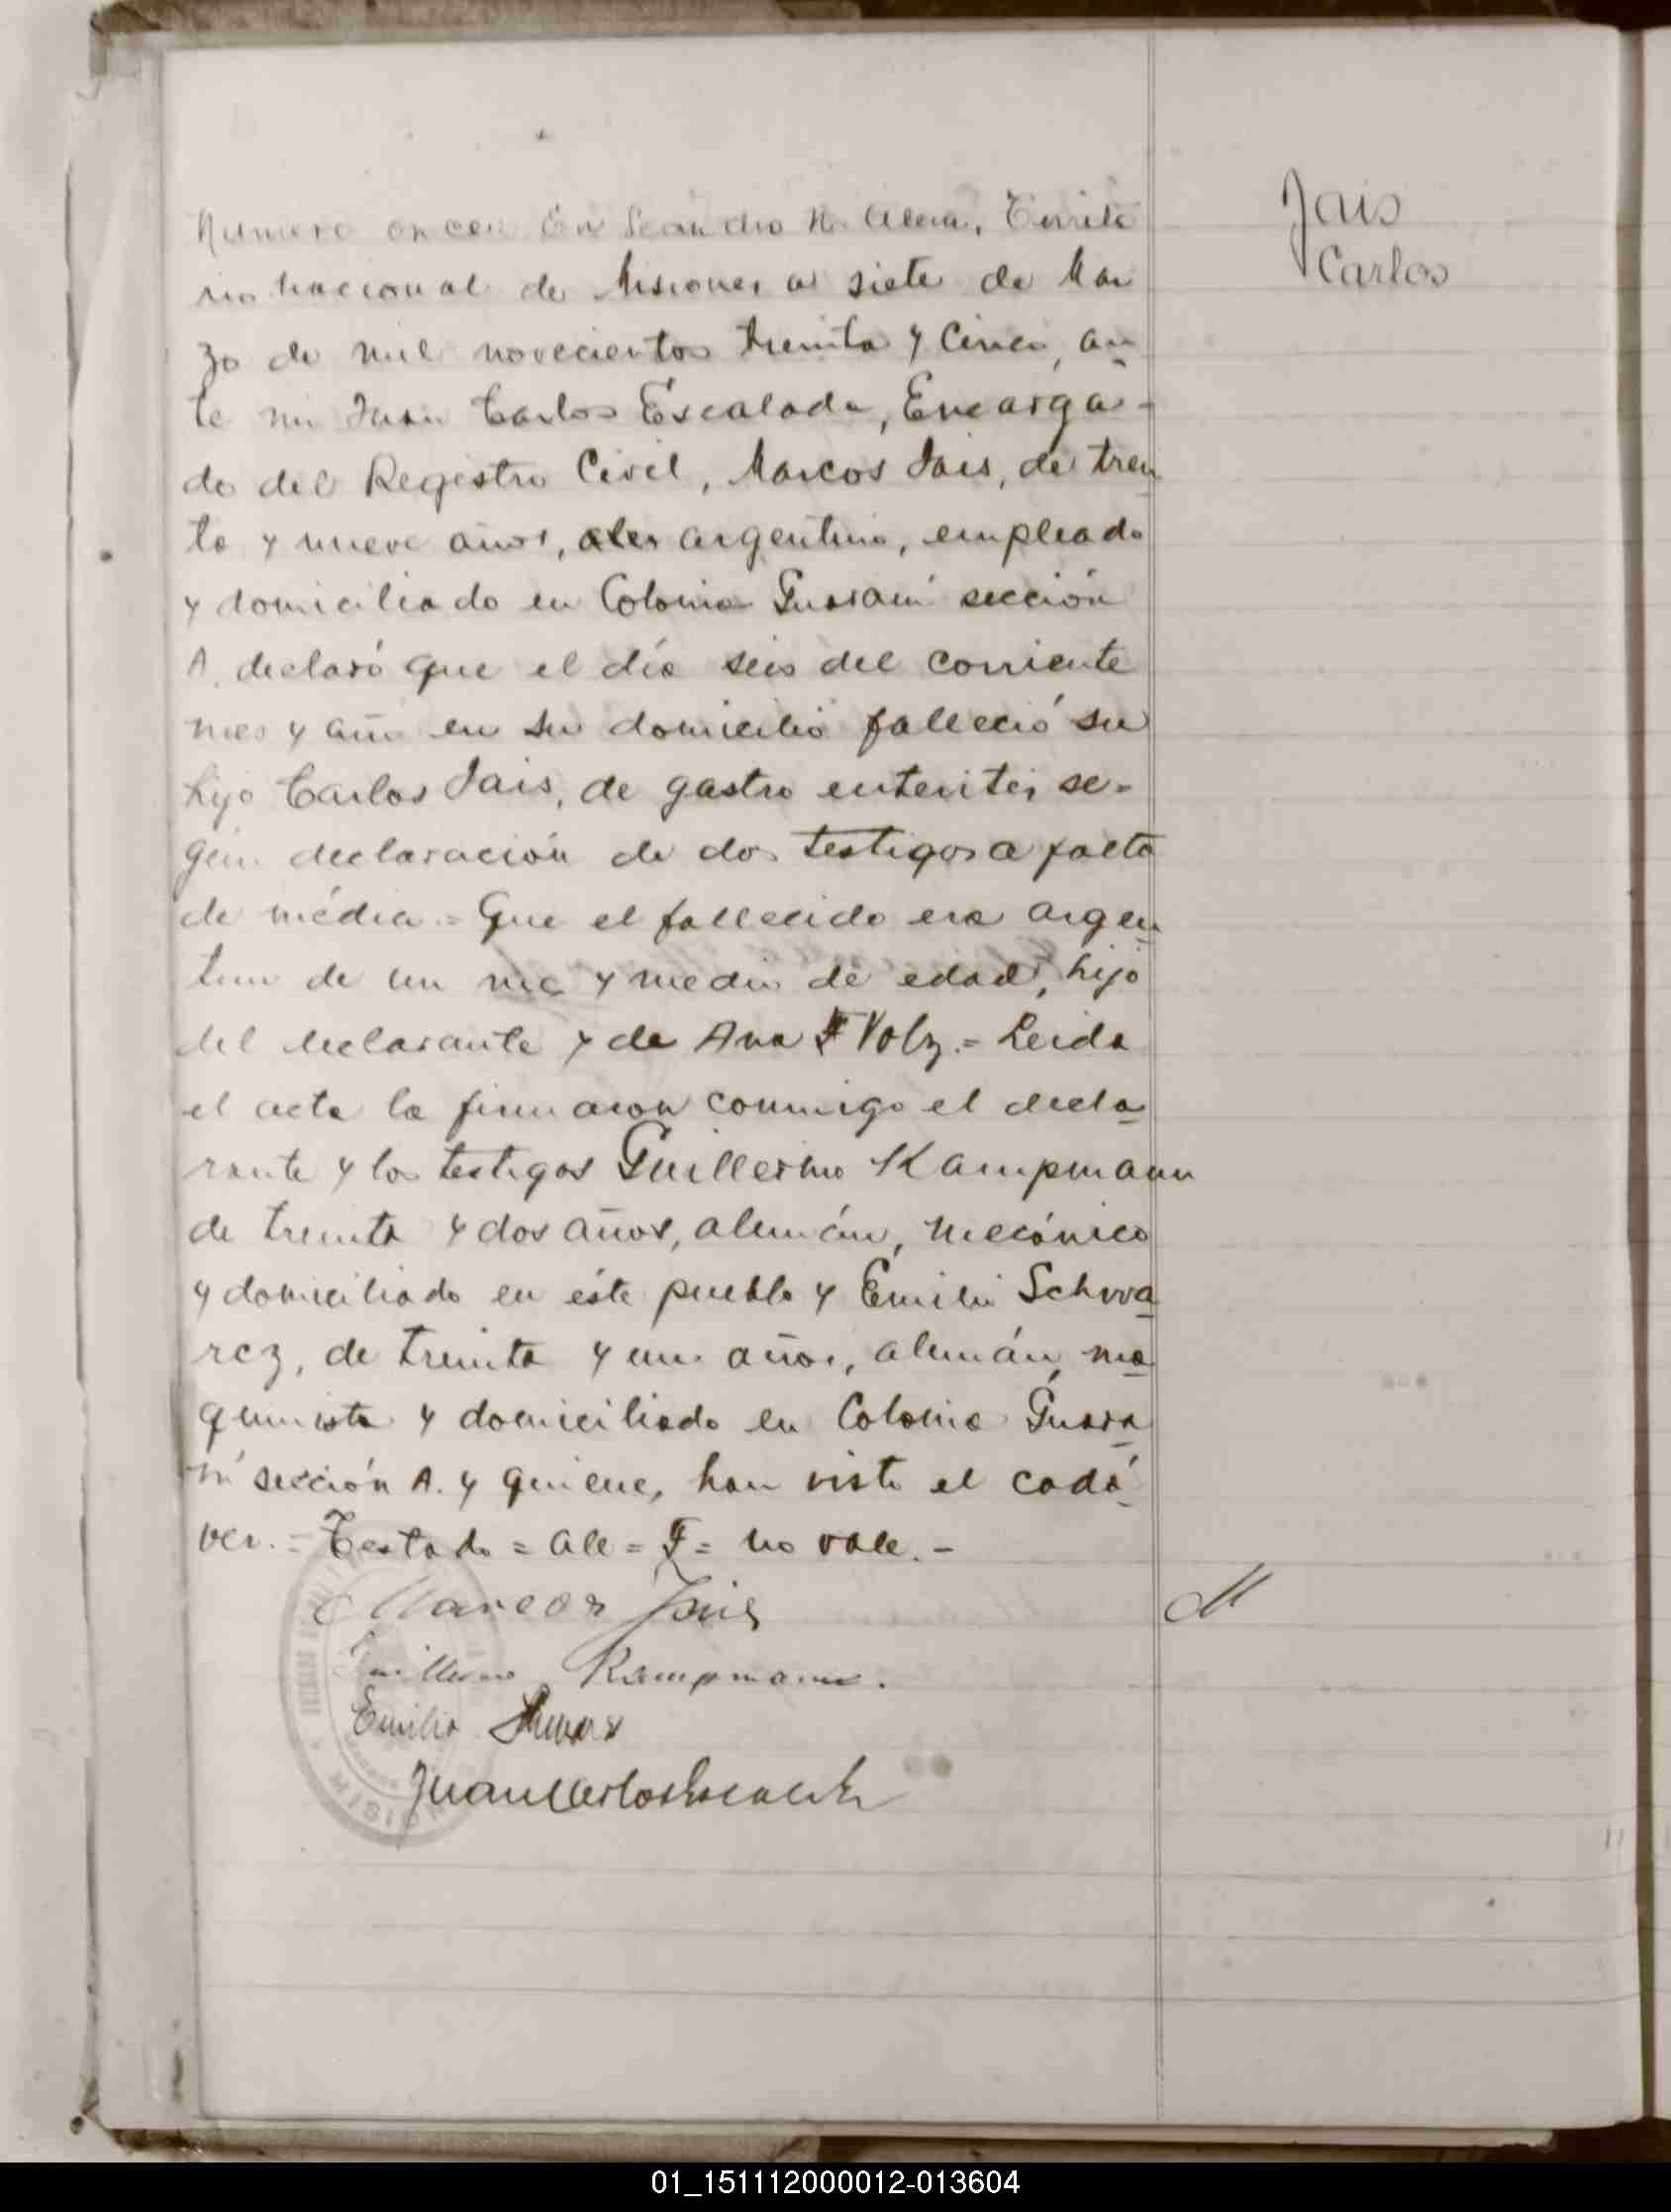 Jais
Carlos
Numero once = En Leandro N. Alem, Territo
rio Nacional de Misiones a siete de Mar
zo de mil novecientos treinta y cinco, an
te mi Juan Carlos Escalada, Encarga-
do del Registro Civil, Marcos Jais, de trein
ta y nueve años, ale argentino, empleado
y domiciliado en Colonia Guaraní sección
A. declaró que el día seis del corriente
mes y año en su domicilio falleció su
hijo Carlos Jais, de gastro enteritis se=
gún declaración de dos testigos a falta
de médico = Que el fallecido era argen
tino de un mes y medio de edad, hijo
del declarante y de Ana F Volz. = Leida
el acta la firmaron conmigo el decla
rante y los testigos Guillermo Kampmann
de treinta y dos años, alemán, mecánico
y domiciliado en éste pueblo y Emilio Schwa
rcz, de treinta y un años, alemán, ma
quinista y domiciliado en Colonia Guara
ní sección A. y quienes han visto el cadá
ver. = Testado = ale = F = no vale. -
Marcos Jais
M
Guillermo Kampmann.
Emilio Schwarz
Juan Carlos Escalada
01_151112000012-013604